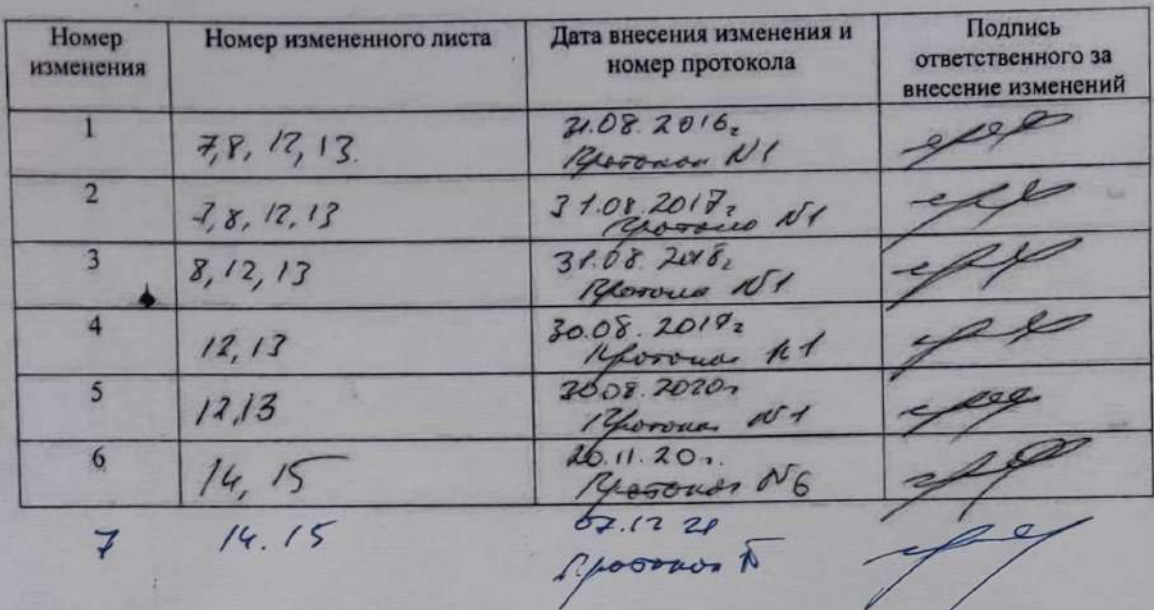 Номер изменения
Номер измененного листа
Дата внесения изменения и номер протокола
Подпись ответственного за внесение изменений
1
7,8, 12, 13.
31.08.2016г
Протокол №1
2
7,8, 12,13
31.08.2017г
Протокол №1
3
8, 12, 13
31.08.2018г
Протокол №1
4
12, 13
30.08.2019г
Протокол №1
5
12,13
Протокол №1
6
14, 15
Протокол №6
7
14.15
07.12 21
Протокол